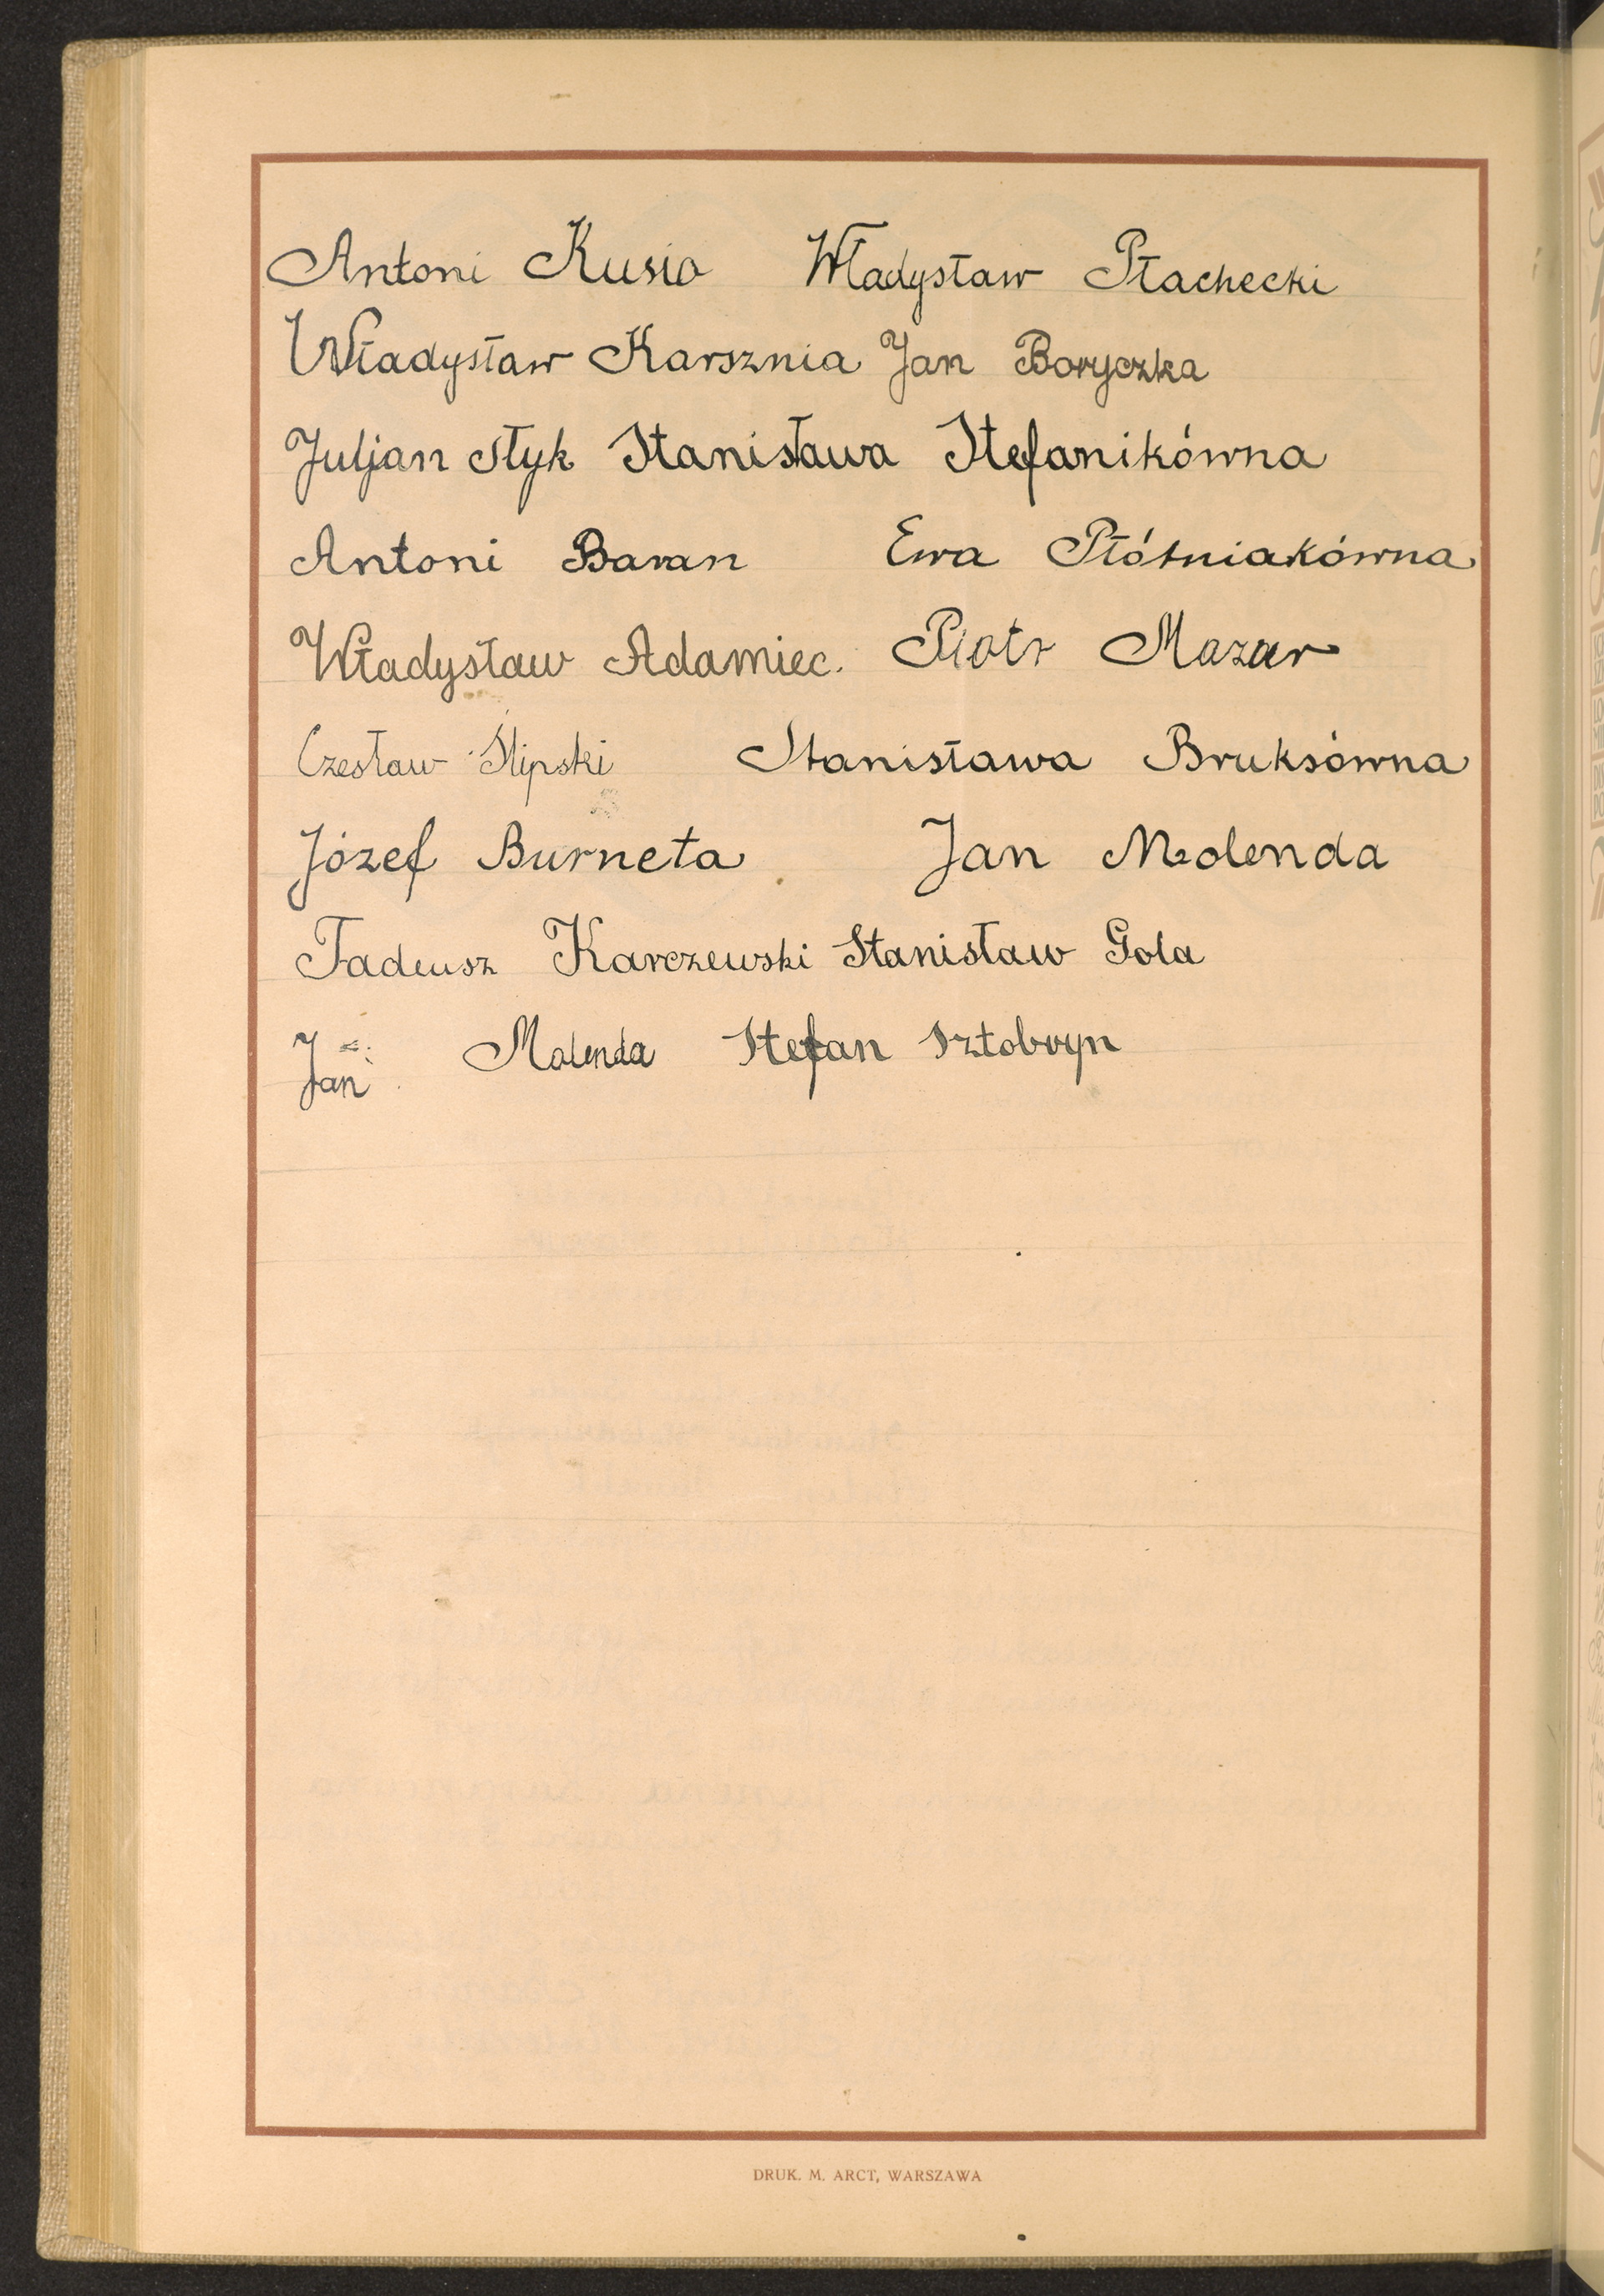 Antoni Kusio Władysław Płachecki
Władysław Karsznia Jan Boryczka
Juljan Styk Stanisława Stefanikówna
Antoni Baran Ewa Płóśniakówna
Władysław Adamiec. Piotr Mazur
Czesław Ślipski Stanisława Bruksówna
Józef Burneta Jan Molenda
Tadeusz Karczewski Stanisław Gola
Jan Molenda Stefan Sztobryn
DRUK. M. ARCT, WARSZAWA